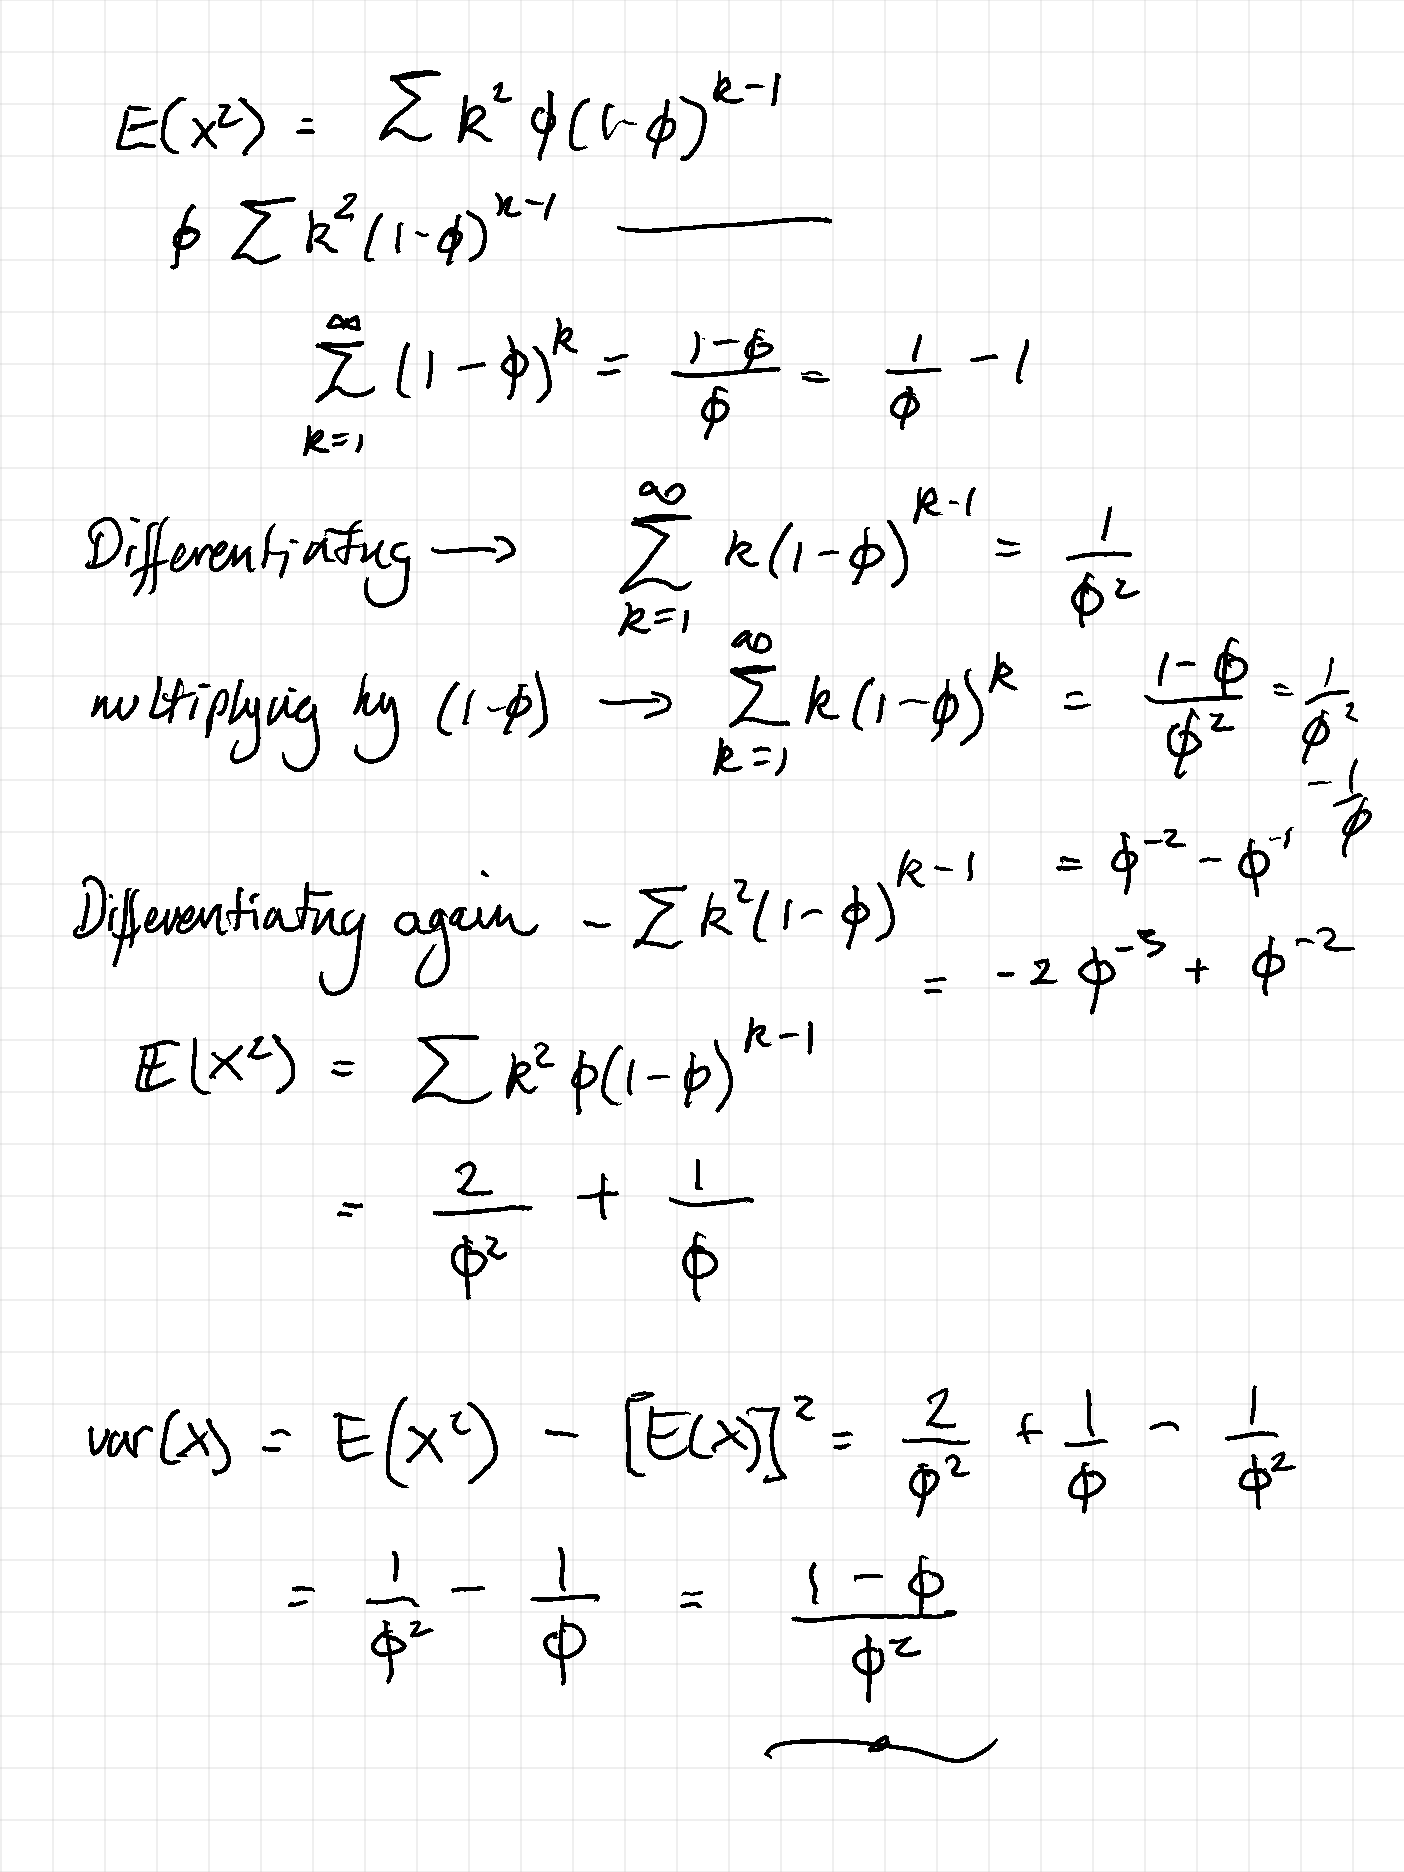 E(x²) = Σ k² ϕ(1-ϕ)^{k-1}
ϕ Σ k² (1-ϕ)^{k-1} ———
Σ_{k=1}^{∞} (1-ϕ)^k = (1-ϕ)/ϕ = 1/ϕ - 1
Differentiating → Σ_{k=1}^{∞} k(1-ϕ)^{k-1} = 1/ϕ²
multiplying by (1-ϕ) → Σ_{k=1}^{∞} k(1-ϕ)^k = (1-ϕ)/ϕ² = 1/ϕ² - 1/ϕ
= ϕ^{-2} - ϕ^{-1}
Differentiating again - Σ k²(1-ϕ)^{k-1}
= -2 ϕ^{-3} + ϕ^{-2}
E(X²) = Σ k² ϕ(1-ϕ)^{k-1}
= 2/ϕ² + 1/ϕ
var(X) = E(X²) - [E(X)]² = 2/ϕ² + 1/ϕ - 1/ϕ²
= 1/ϕ² - 1/ϕ = (1-ϕ)/ϕ²